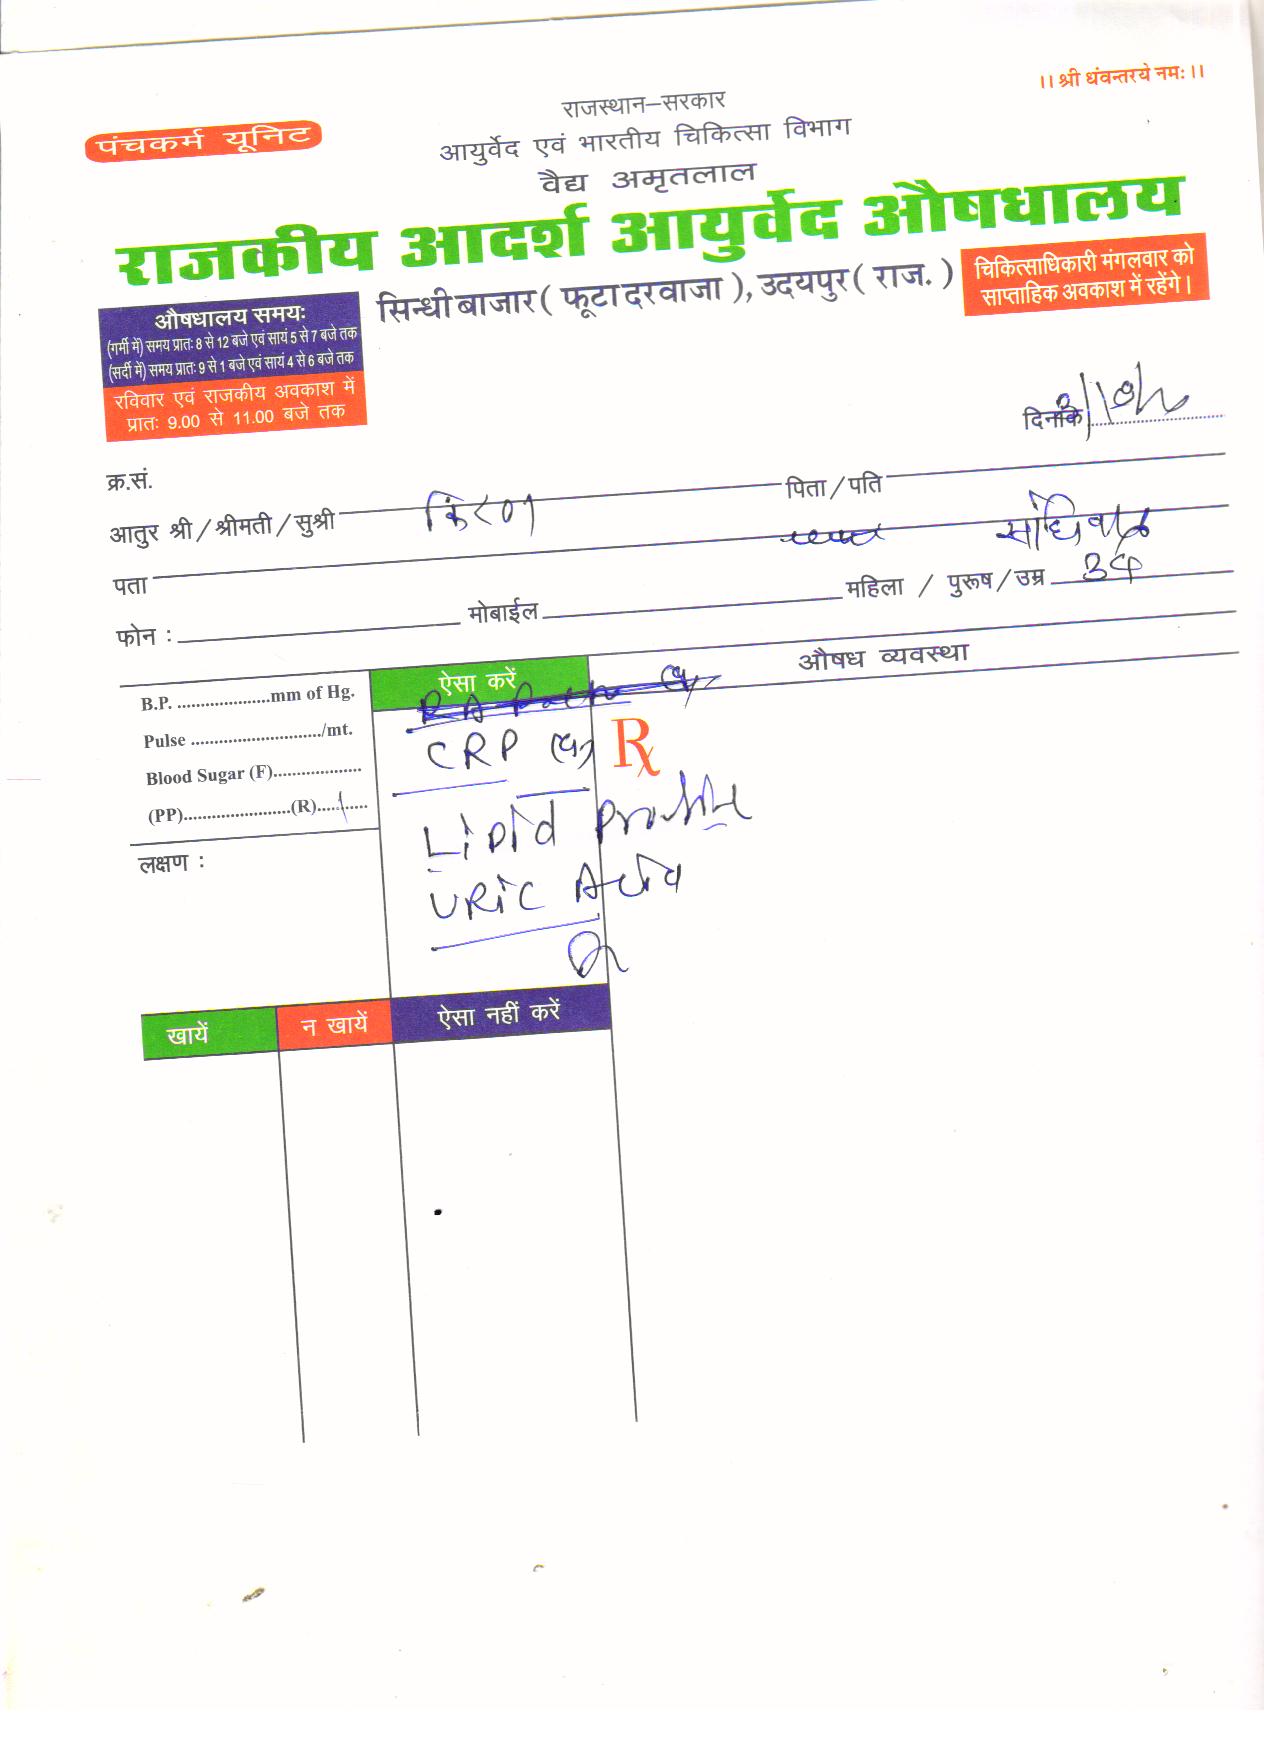 ।। श्री धंवन्तरये नमः ।।
पंचकर्म यूनिट
राजस्थान–सरकार
आयुर्वेद एवं भारतीय चिकित्सा विभाग
वैद्य अमृतलाल
राजकीय आदर्श आयुर्वेद औषधालय
सिन्धी बाजार ( फूटा दरवाजा ), उदयपुर ( राज. )
चिकित्साधिकारी मंगलवार को
साप्ताहिक अवकाश में रहेंगे।
औषधालय समयः
(गर्मी में) समय प्रातः 8 से 12 बजे एवं सायं 5 से 7 बजे तक
(सर्दी में) समय प्रातः 9 से 1 बजे एवं सायं 4 से 6 बजे तक
रविवार एवं राजकीय अवकाश में
प्रातः 9.00 से 11.00 बजे तक
दिनांक
क्र.सं.
आतुर श्री / श्रीमती / सुश्री किरण पिता / पति
पता
फोन : मोबाईल महिला / पुरूष / उम्र
B.P. ....................mm of Hg.
Pulse ............................/mt.
Blood Sugar (F)...................
(PP).......................(R)...........
लक्षण :
ऐसा करें
औषध व्यवस्था
CRP
Rx
Lipid Profile
URIC Acid
खायें न खायें ऐसा नहीं करें